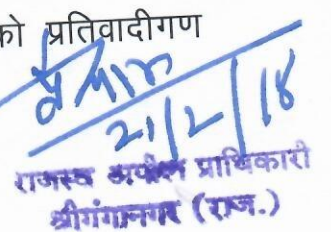 को प्रतिवादीगण
21/2/18
राजस्व अपील प्राधिकारी
श्रीगंगानगर (राज.)